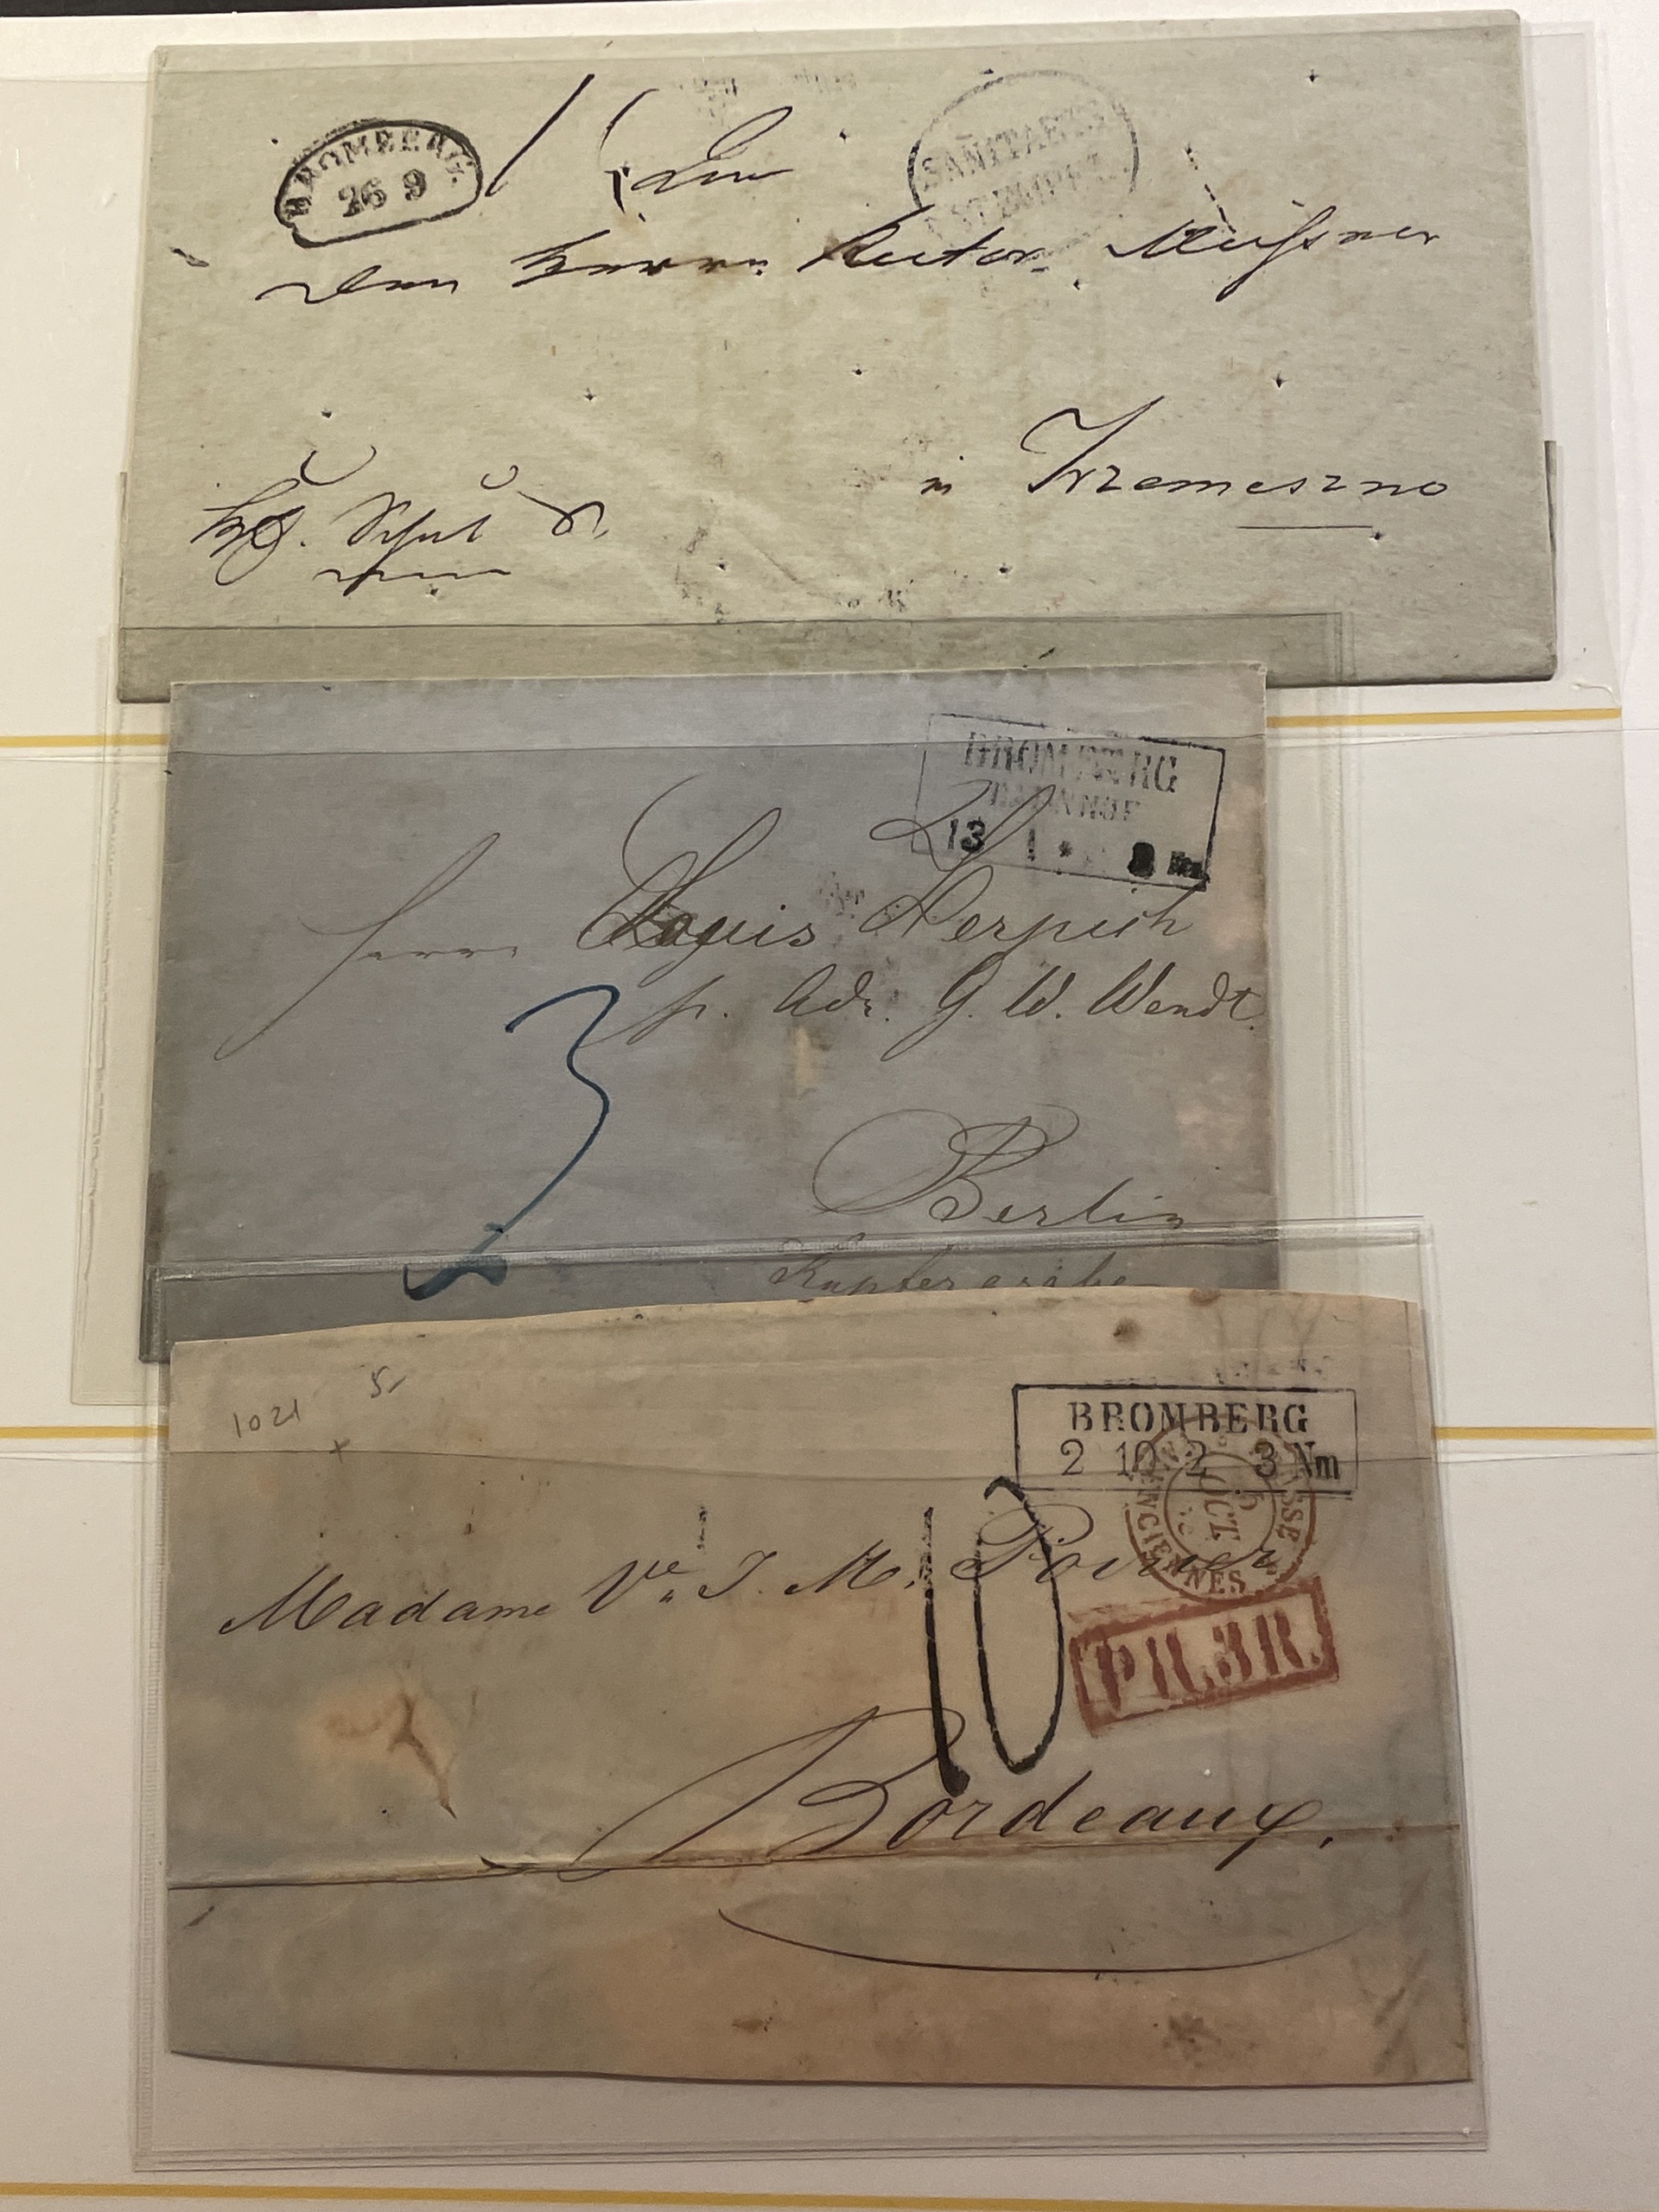 BROMBERG.
26 9
SANITAETS
STEMPEL
Dem Herrn Rector Meissner
in Trzemeszno
BROMBERG
BAHNHOF
13 1 * 8
Herrn Louis
p. Adr. G. W. Wendt.
3
Berlin
Kupfergraben
1021
BROMBERG
2 10 2 3 Nm
OCT.
5
VALENCIENNES
Madame Ve. J. M. Poirier
10
PR.3R.
Bordeaux.